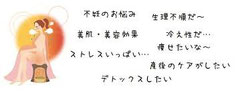 不妊のお悩み
生理不順だ～
美肌・美容効果
冷え性だ…
ストレスいっぱい…
痩せたいな～
産後のケアがしたい
デトックスしたい